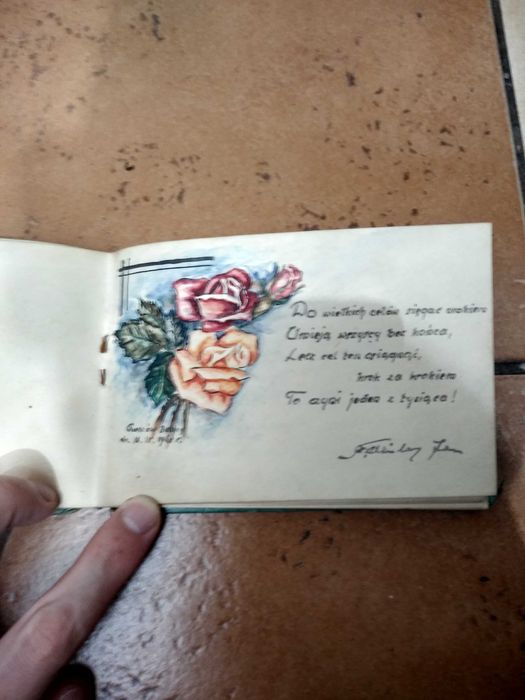 Do wielkich celów sięgać wzrokiem
Umieją wszyscy bez końca,
Lecz cel ten osiągnąć,
krok za krokiem
To czyni jeden z tysiąca!
dn.